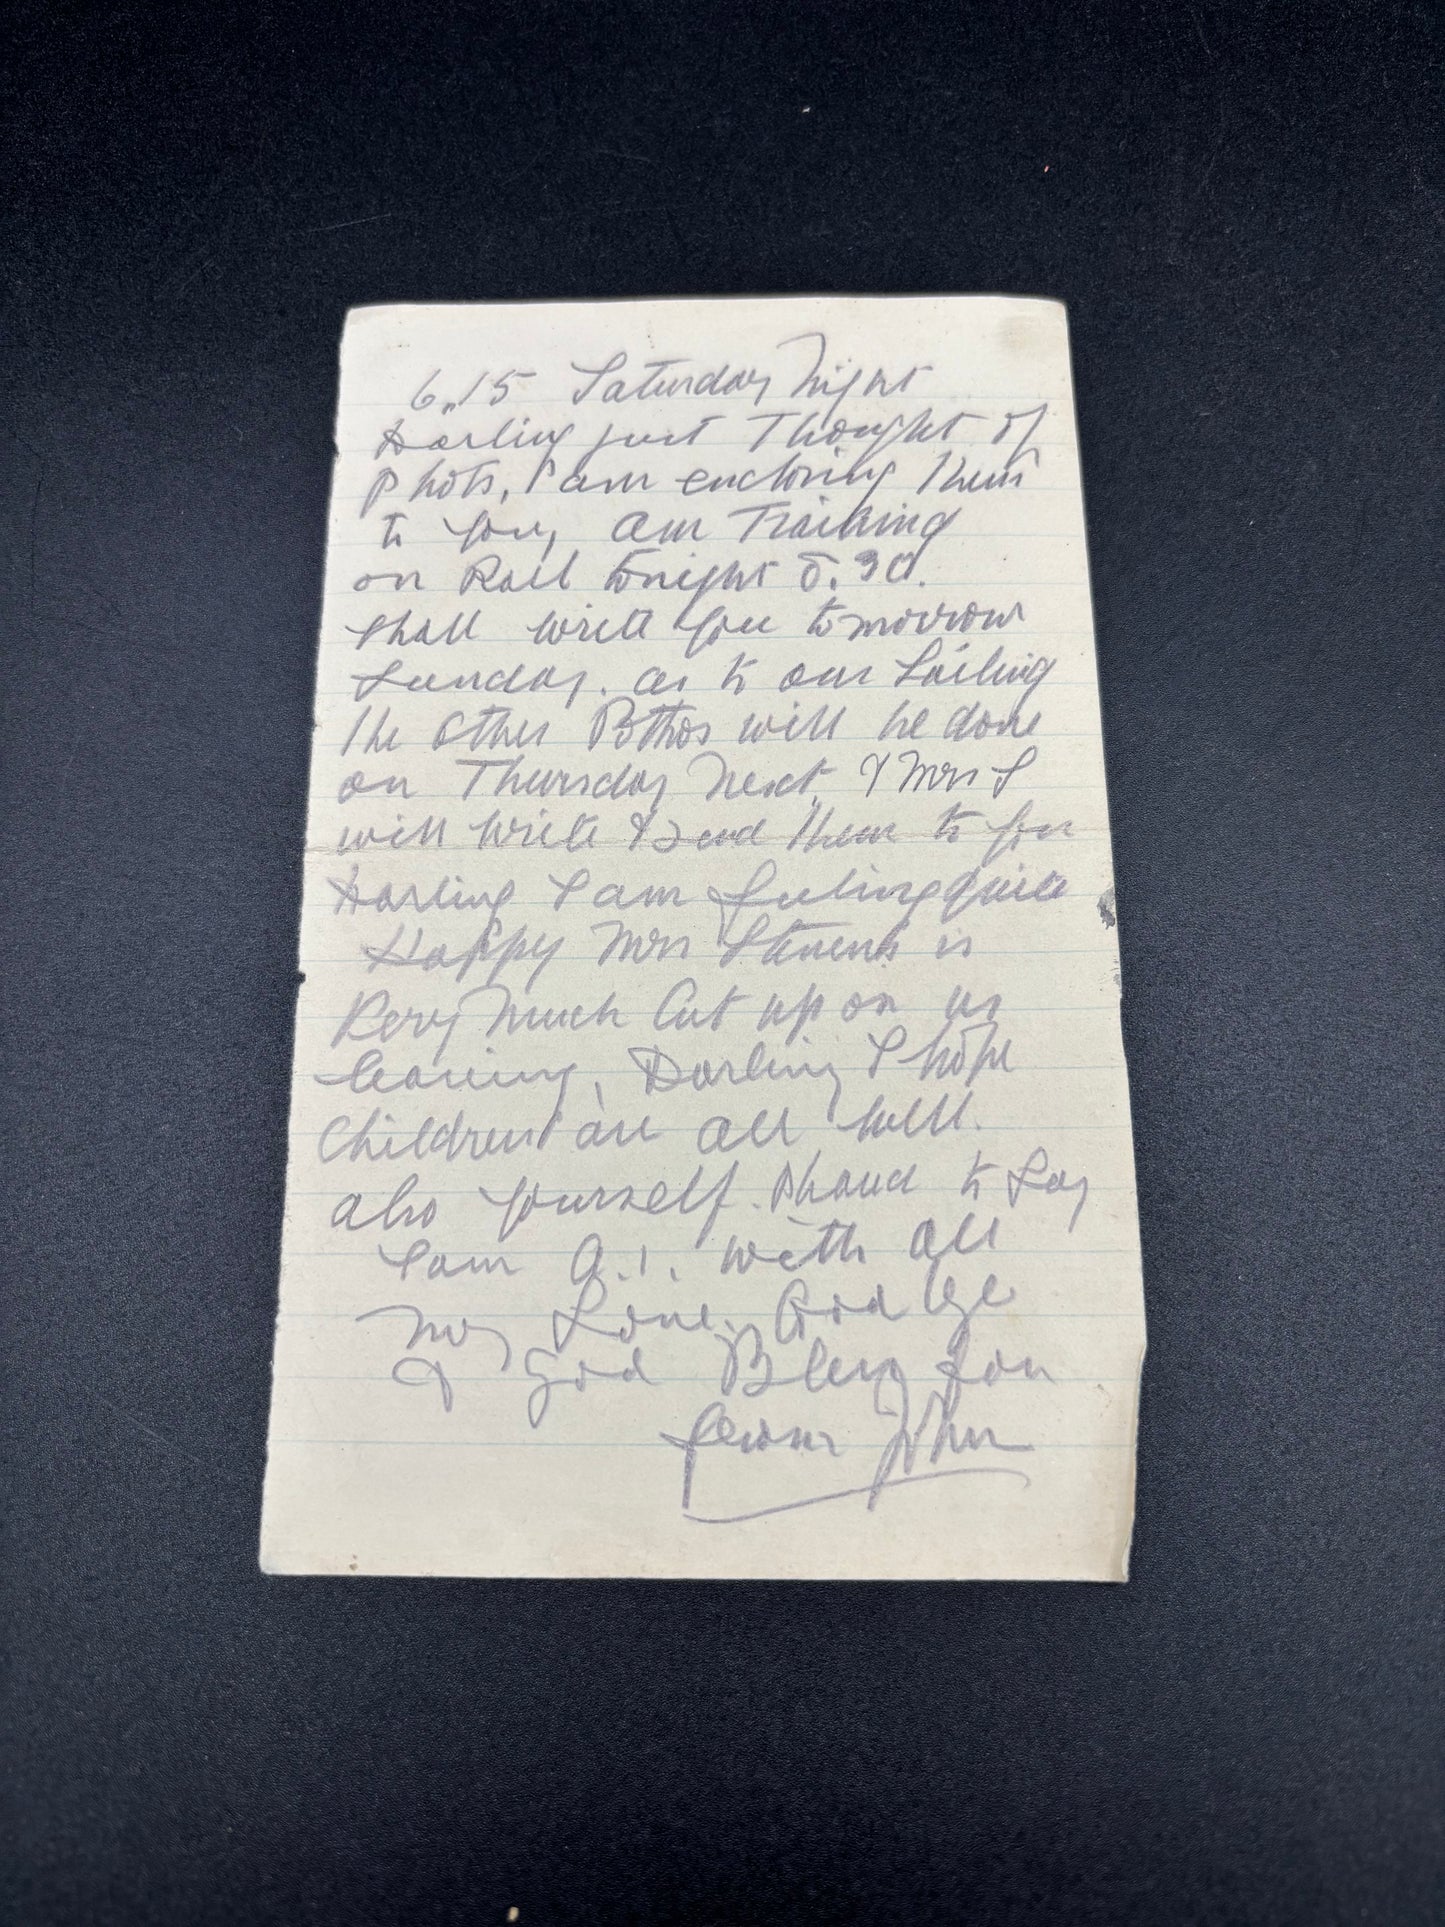 6.15 Saturday Night
Darling just Thought of
Photos, I am enclosing them
to you, am Training
on Rail tonight 8.30.
shall write you tomorrow
Sunday. as to our Sailing
the other Pothos will be done
on Thursday Next, & Mrs S
will write & send them to you
Darling I am feeling quite
Happy Mrs Stevens is
Very much Cut up on us
leaving, Darling I hope
Children are all well.
also yourself. Pleased to Say
I am A.1. with all
My Love. Good bye
& God Bless You
John